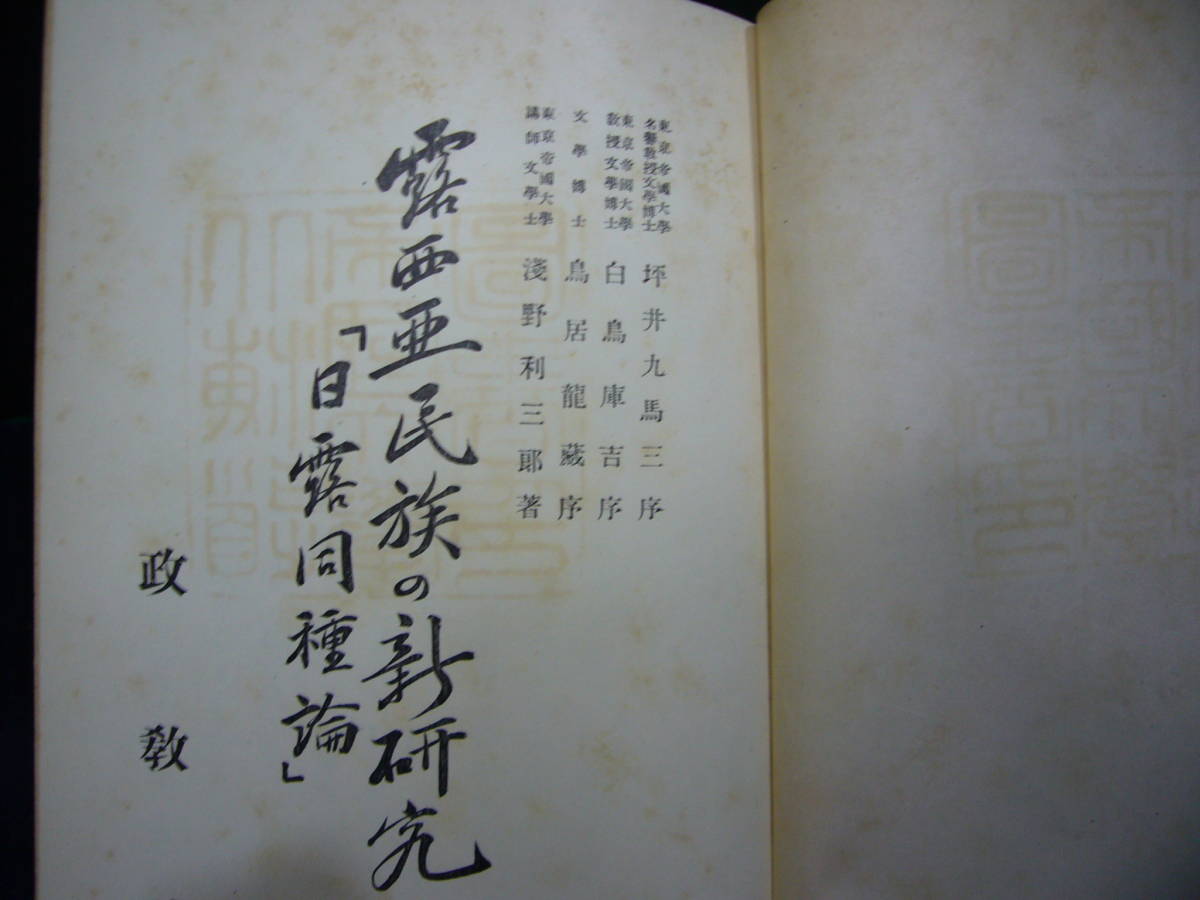 東京帝國大學
名譽敎授文學博士 坪井九馬三序
東京帝國大學
敎授文學博士 白鳥庫吉序
文學博士 鳥居龍藏序
東京帝國大學
講師文學士 淺野利三郎著
露西亜民族の新研究
「日露同種論」
政敎